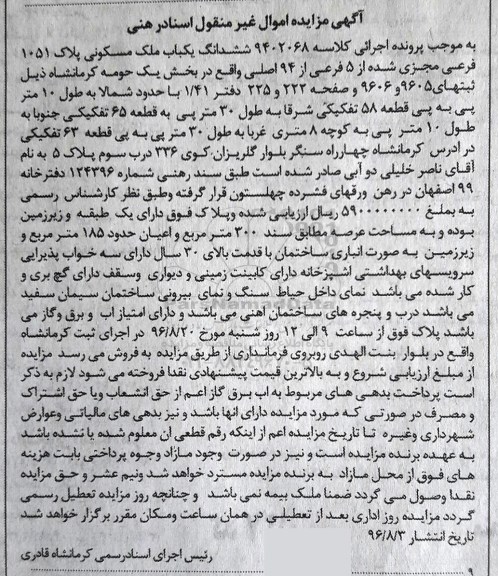 آگهی مزایده اموال غیر منقول اسناد رهنی
به موجب پرونده اجرائی کلاسه ۹۴۰۲۰۶۸ ششدانگ یکباب ملک مسکونی پلاک ۱۰۵۱
فرعی مجزی شده از ۵ فرعی از ۹۴ اصلی واقع در بخش یک حومه کرمانشاه ذیل
ثبتهای۹۶۰۵ و ۹۶۰۶ و صفحه ۲۲۲ و ۲۲۵ دفتر ۱/۴۱ با حدود شمالا به طول ۱۰ متر
پی به پی قطعه ۵۸ تفکیکی شرقا به طول ۳۰ متر پی به قطعه ۶۵ تفکیکی جنوبا به
طول ۱۰ متر پی به کوچه ۸ متری غربا به طول ۳۰ متر پی به پی قطعه ۶۳ تفکیکی
در ادرس کرمانشاه چهارراه سنگر بلوار گلریزان کوی ۳۳۶ درب سوم پلاک ۵ به نام
آقای ناصر خلیلی دو آبی صادر شده است طبق سند رهنی شماره ۱۲۴۳۹۶ دفترخانه
۹۹ اصفهان در رهن ورقهای فشرده چهلستون قرار گرفته وطبق نظر کارشناس رسمی
به بمبلغ ۵۹۰۰۰۰۰۰۰۰ ریال ارزیابی شده وپلاک فوق دارای یک طبقه و زیرزمین
بوده و به مساحت عرصه مطابق سند ۳۰۰ متر مربع و اعیان حدود ۱۸۵ متر مربع و
زیرزمین به صورت انباری ساختمان با قدمت بالای ۳۰ سال دارای سه خواب پذیرایی
سرویسهای بهداشتی اشپزخانه دارای کابینت زمینی و دیواری وسقف دارای گچ بری و
کار شده می باشد نمای داخل حیاط سنگ و نمای بیرونی ساختمان سیمان سفید
می باشد درب و پنجره های ساختمان اهنی می باشد و دارای امتیاز اب و برق وگاز می
باشد پلاک فوق از ساعت ۹ الی ۱۲ روز شنبه مورخ ۹۶/۸/۲۰ در اجرای ثبت کرمانشاه
واقع در بلوار بنت الهدی روبروی فرمانداری از طریق مزایده به فروش می رسد مزایده
از مبلغ ارزیابی شروع و به بالاترین قیمت پیشنهادی نقدا فروخته می شود لازم به ذکر
است پرداخت بدهی های مربوط به اب برق گاز اعم از حق انشعاب ویا حق اشتراک
و مصرف در صورتی که مورد مزایده دارای انها باشد و نیز بدهی های مالیاتی وعوارض
شهرداری وغیره تا تاریخ مزایده اعم از اینکه رقم قطعی ان معلوم شده یا نشده باشد
به عهده برنده مزایده است و نیز در صورت وجود مازاد وجوه پرداختی بابت هزینه
های فوق از محل مازاد به برنده مزایده مسترد خواهد شد ونیم عشر و حق مزایده
نقدا وصول می گردد ضمنا ملک بیمه نمی باشد و چنانچه روز مزایده تعطیل رسمی
گردد مزایده روز اداری بعد از تعطیلی در همان ساعت ومکان مقرر برگزار خواهد شد
تاریخ انتشار ۹۶/۸/۳
رئیس اجرای اسنادرسمی کرمانشاه قادری